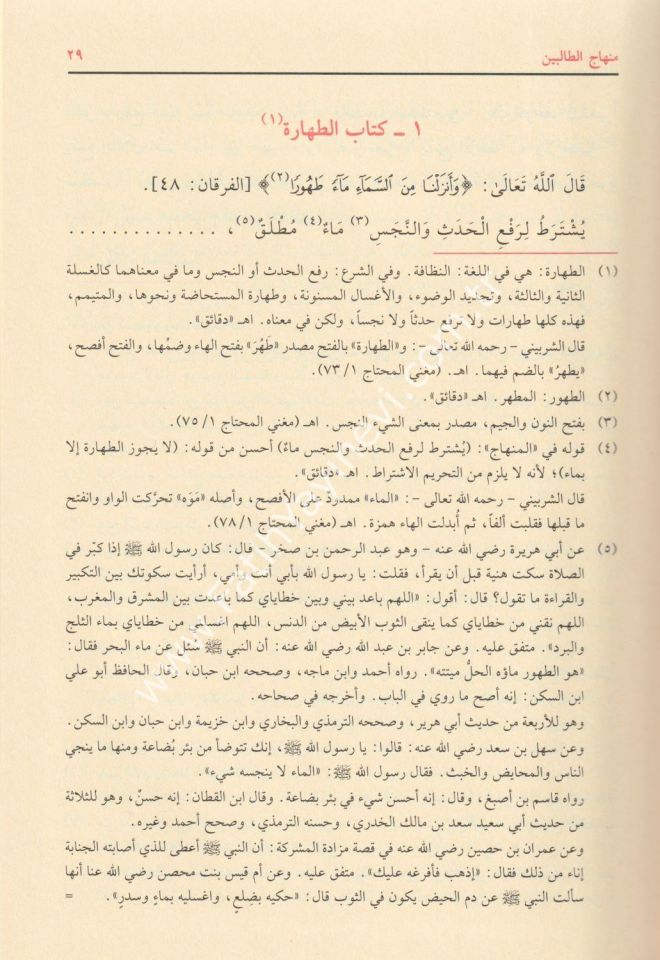 منهاج الطالبين ٢٩
١ ـ كتاب الطهارة(١)
قَالَ اللَّهُ تَعَالَىٰ: ﴿وَأَنزَلْنَا مِنَ السَّمَآءِ مَآءً طَهُورًا(٢)﴾ [الفرقان: ٤٨].
يُشْتَرَطُ لِرَفْعِ الْحَدَثِ وَالنَّجَسِ(٣) مَاءٌ(٤) مُطْلَقٌ(٥)، . . . . . . . . . . . . . .
(١) الطهارة: هي في اللغة: النظافة. وفي الشرع: رفع الحدث أو النجس وما في معناهما كالغسلة
الثانية والثالثة، وتجديد الوضوء، والأغسال المسنونة، وطهارة المستحاضة ونحوها، والمتيمم،
فهذه كلها طهارات ولا ترفع حدثاً ولا نجساً، ولكن في معناه. اهـ «دقائق».
قال الشربيني – رحمه الله تعالى –: و«الطهارة» بالفتح مصدر «طَهُرَ» بفتح الهاء وضمّها، والفتح أفصح،
«يطهرُ» بالضم فيهما. اهـ. (مغني المحتاج ١/ ٧٣).
(٢) الطهور: المطهر. اهـ «دقائق».
(٣) بفتح النون والجيم، مصدر بمعنى الشيء النجس. اهـ (مغني المحتاج ١/ ٧٥).
(٤) قوله في «المنهاج»: (يُشترط لرفع الحدث والنجس ماءٌ) أحسن من قوله: (لا يجوز الطهارة إلا
بماء)؛ لأنه لا يلزم من التحريم الاشتراط. اهـ «دقائق».
قال الشربيني – رحمه الله تعالى –: «الماء» ممدودٌ على الأفصح، وأصله «مَوَه» تحرَّكت الواو وانفتح
ما قبلها فقلبت ألفاً، ثم أُبدلت الهاء همزة. اهـ (مغني المحتاج ١/ ٧٨).
(٥) عن أبي هريرة رضي الله عنه – وهو عبد الرحمن بن صخر – قال: كان رسول الله ﷺ إذا كبّر في
الصلاة سكت هنية قبل أن يقرأ، فقلت: يا رسول الله بأبي أنت وأمي، أرأيت سكوتك بين التكبير
والقراءة ما تقول؟ قال: أقول: «اللهم باعد بيني وبين خطاياي كما باعدت بين المشرق والمغرب،
اللهم نقني من خطاياي كما ينقى الثوب الأبيض من الدنس، اللهم اغسلني من خطاياي بماء الثلج
والبرد». متفق عليه. وعن جابر بن عبد الله رضي الله عنه: أن النبي ﷺ سُئل عن ماء البحر فقال:
«هو الطهور ماؤه الحلُّ ميتته». رواه أحمد وابن ماجه، وصححه ابن حبان، وقال الحافظ أبو علي
ابن السكن: إنه أصح ما روي في الباب. وأخرجه في صحاحه.
وهو للأربعة من حديث أبي هرير، وصححه الترمذي والبخاري وابن خزيمة وابن حبان وابن السكن.
وعن سهل بن سعد رضي الله عنه: قالوا: يا رسول الله ﷺ، إنك تتوضأ من بئر بُضاعة ومنها ما ينجي
الناس والمحايض والخبث. فقال رسول الله ﷺ: «الماء لا ينجسه شيء».
رواه قاسم بن أصبغ، وقال: إنه أحسن شيء في بئر بضاعة. وقال ابن القطان: إنه حسنٌ، وهو للثلاثة
من حديث أبي سعيد سعد بن مالك الخدري، وحسنه الترمذي، وصحح أحمد وغيره.
وعن عمران بن حصين رضي الله عنه في قصة مزادة المشركة: أن النبي ﷺ أعطى للذي أصابته الجنابة
إناء من ذلك فقال: «إذهب فأفرغه عليك». متفق عليه. وعن أم قيس بنت محصن رضي الله عنا أنها
سألت النبي ﷺ عن دم الحيض يكون في الثوب قال: «حكيه بِضِلع، واغسليه بماءٍ وسدرٍ». =